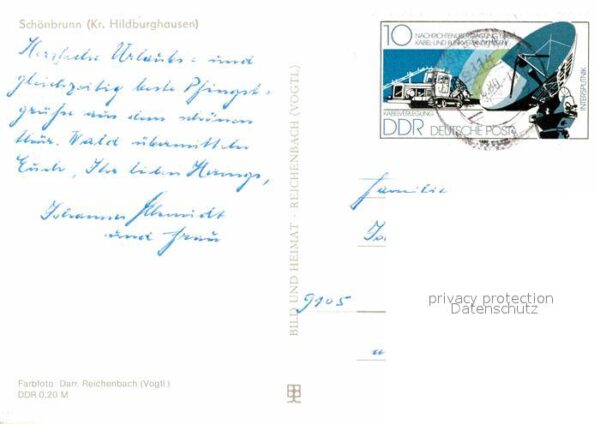 Schönbrunn (Kr. Hildburghausen)
Herzliche Urlaubs- und
gleichzeitig beste Pfingst-
grüße aus dem schönen
Thür. Wald übermitteln
Euch, Ihr lieben
Johannes Schmidt
und Frau
BILD UND HEIMAT · REICHENBACH (VOGTL)
10
NACHRICHTENÜBERTRAGUNG
KABEL- UND
KABELVERLEGUNG
INTERSPUTNIK
DDR DEUTSCHE POST
Familie
9105
privacy protection
Datenschutz
Farbfoto: Darr, Reichenbach (Vogtl.)
DDR 0,20 M